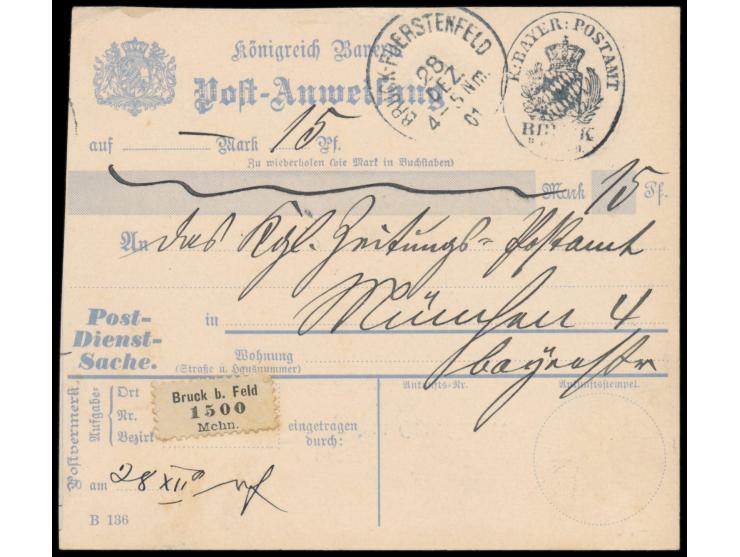 Königreich Bayern.
Post-Anweisung
BRUCK-FUERSTENFELD
28
DEZ.
4-5 Nm.
01
K. BAYER: POSTAMT
BRUCK
auf — Mark 15 Pf.
Zu wiederholen (die Mark in Buchstaben)
Mark 15 Pf.
An das Kgl. Zeitungs-Postamt
in München 4
Post-
Dienst-
Sache.
Wohnung
(Straße u. Hausnummer)
Bayerstr
Postvermerk
Aufgabe-
Ort
Nr.
Bezirk
Bruck b. Feld
1500
Mchn.
eingetragen
durch:
Ankunfts-Nr.
Ankunftsstempel.
am 28 XII
B 136